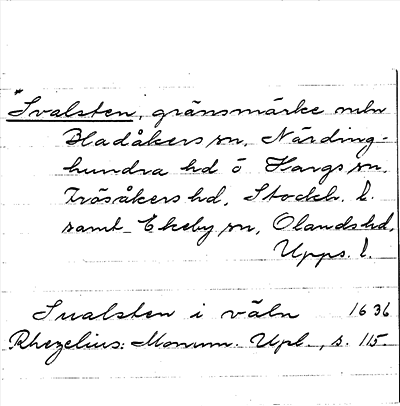 *Svalsten, gränsmärke mln
Bladåkers sn, Närding-
hundra hd o Hargs sn,
Frösåkers hd, Stockh. l.
samt Ekeby sn, Olands hd,
Upps. l.
Sualsten i väln 1636
Rhezelius: Monum. Upl., s. 115.